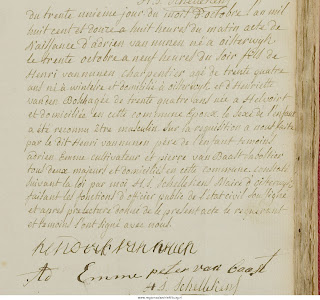 H.S. Schellekens
du trente unieme jour du mois d'octobre l'an mil
huit cent et douze a huit heures du matin acte de
Naissance d'adrien van nunen né a oisterwyk
le trente octobre a neuf heures du soir fils de
Henri vannunen charpentier agé de trente quatre
ans né a et domicilié a oisterwyk et d'Henriette
vanden agée de trente quatre ans née a Helvoirt
et domiciliée en cette commune Epoux le Sexe de l'enfant
a été reconnu être masculin Sur la requisition a nous faite
par le dit Henri vannunen pere de l'enfant temoins
adrien Emme cultivateur et pierre van Baast
tous deux majeurs et domiciliés en cette commune constaté
Suivant la loi par moi H.S. Schellekens Maire d'oisterwyk
faisant les fonctions d'officier public de l'etat civil Soussigné
et apres lecture donnée de le present acte le requerant
et temoins l'ont signé avec nous.
Emme peter van baast
H.S. Schellekens